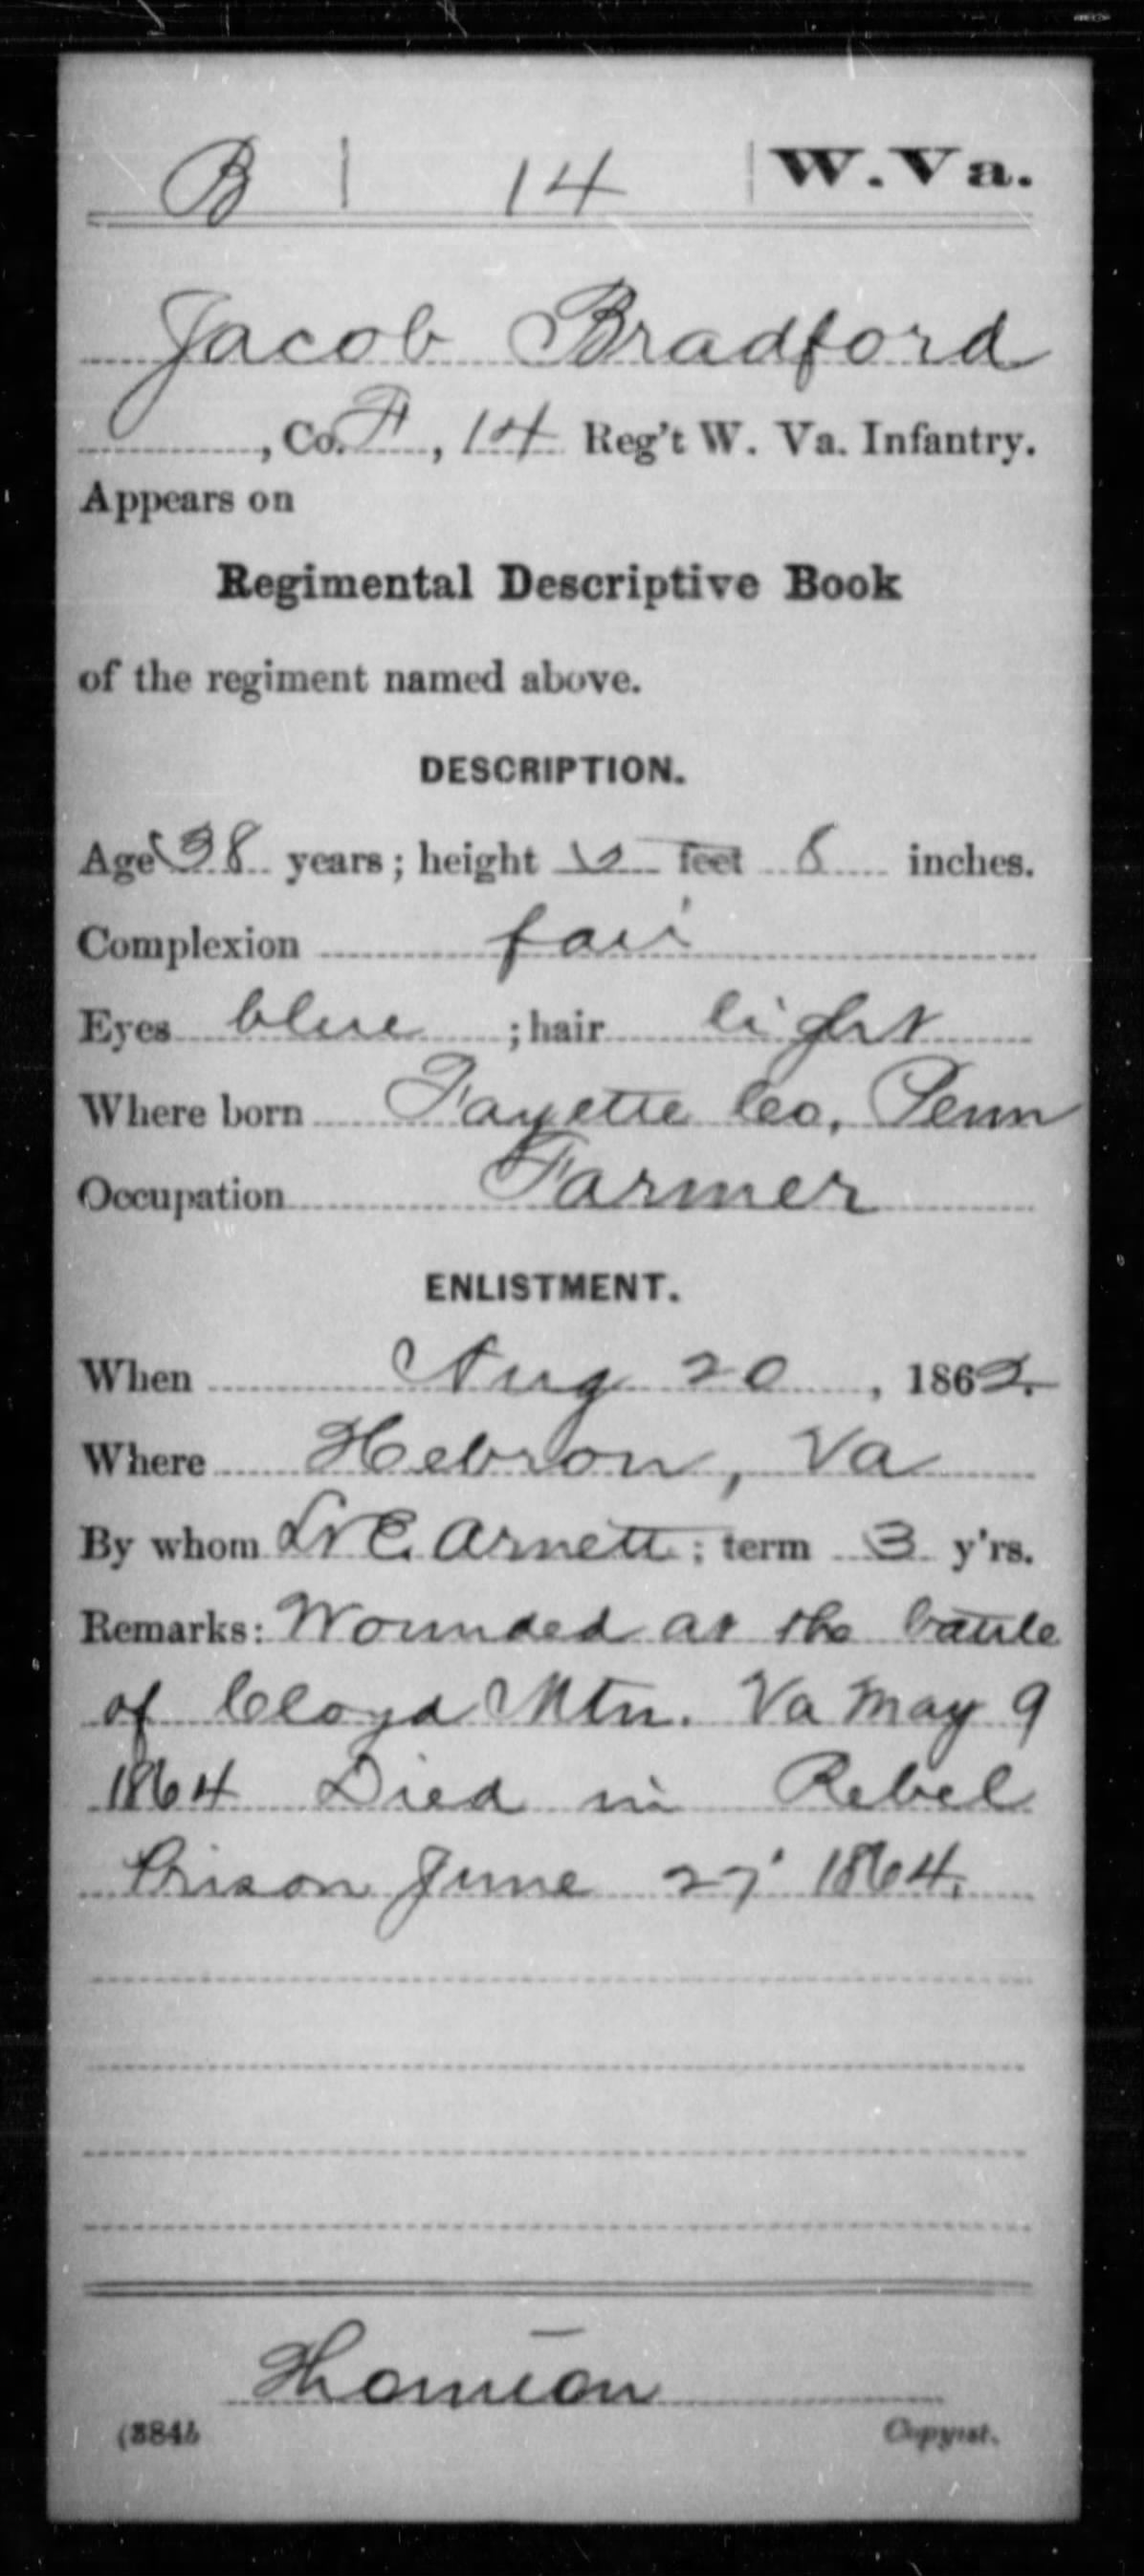 B | 14 | W. Va.
Jacob Bradford
, Co. F, 14 Reg't W. Va. Infantry.
Appears on
Regimental Descriptive Book
of the regiment named above.
DESCRIPTION.
Age 38 years; height 5 feet 8 inches.
Complexion fair
Eyes blue ; hair light
Where born Fayette Co, Penn
Occupation Farmer
ENLISTMENT.
When Aug 20, 1862.
Where Hebron, Va
By whom Arnett; term 3 y'rs.
Remarks: Wounded at the battle
of Cloyd Mtn. Va May 9
1864 Died in Rebel
Prison June 27 1864.
Copyist.